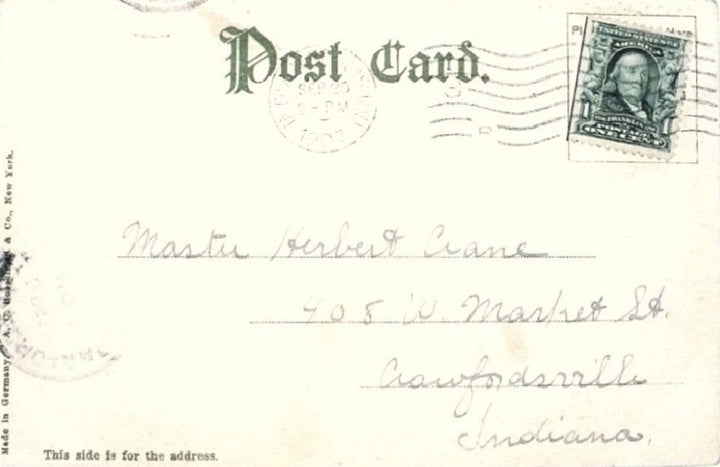 Post Card.
SEP 20
2-PM
1907
UNITED STATES OF
AMERICA
FRANKLIN
1 POSTAGE 1
ONE CENT
Master Herbert Crane
408 W. Market St.
Crawfordsville
Indiana.
This side is for the address.
Made in Germany. A. C. & Co., New York.